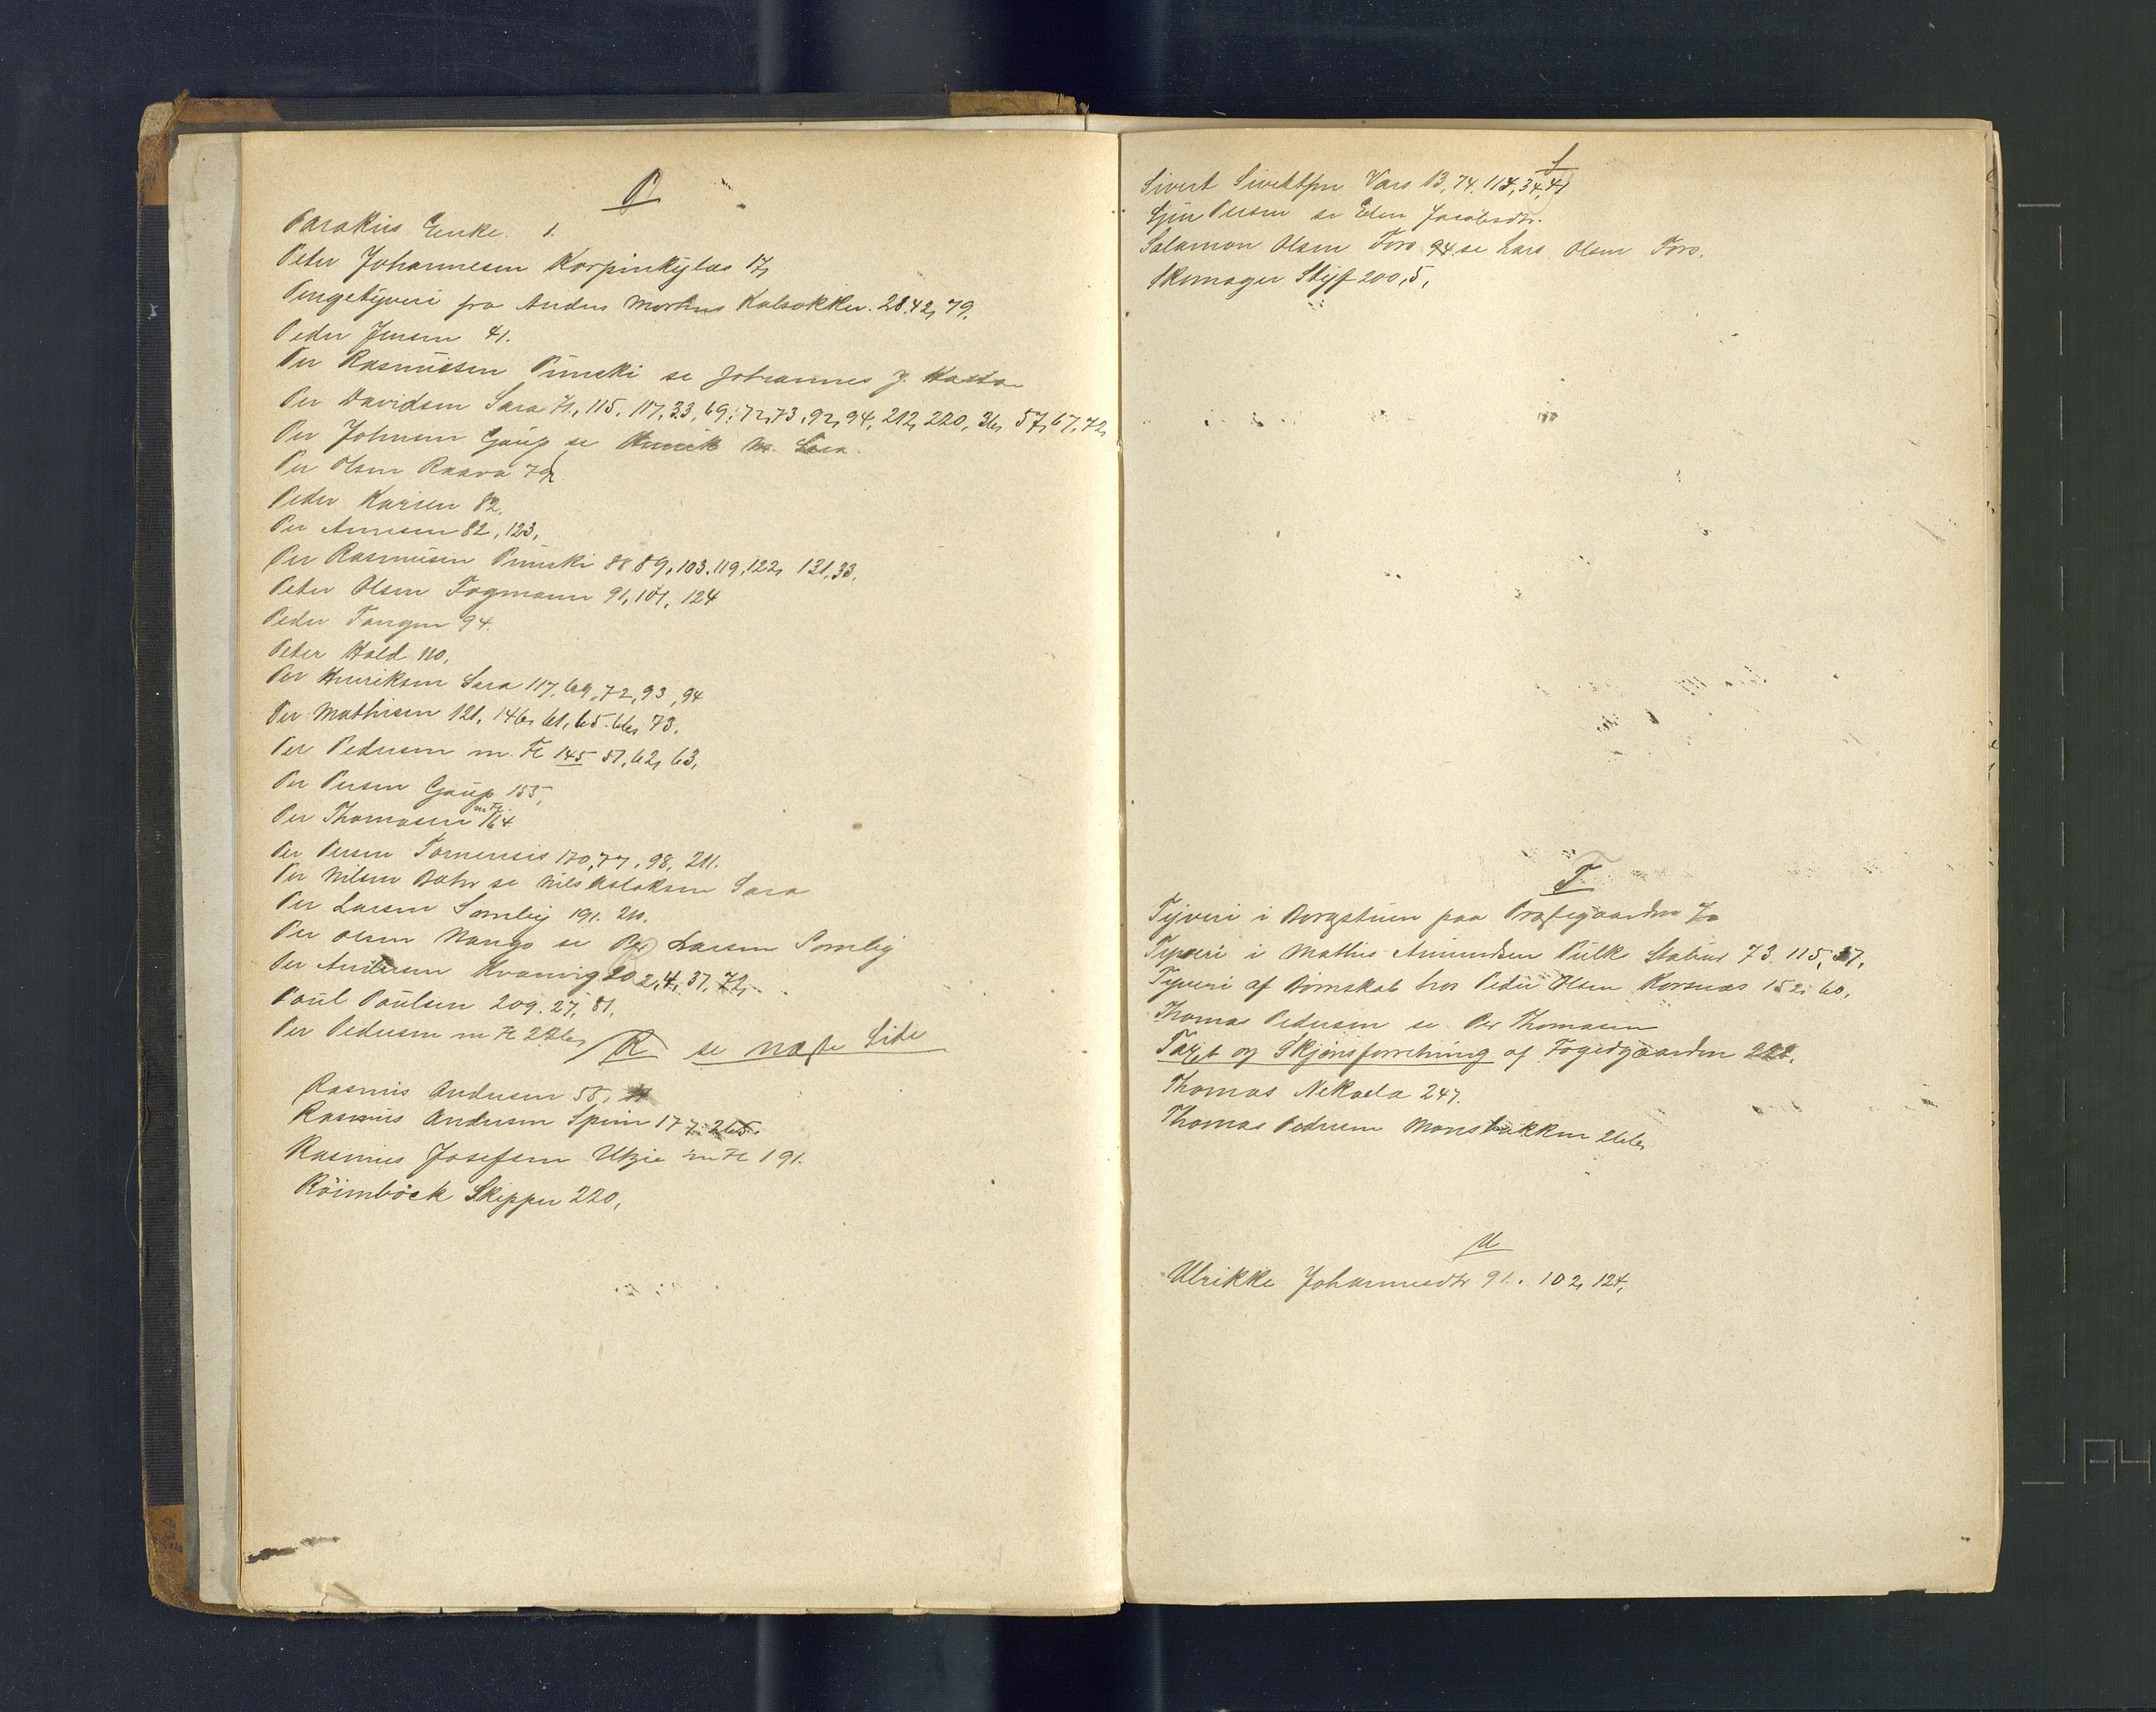 P
Parakus Enke. 1.
Peter Johannesen Korpinkylæs 17,
Pengetyveri fra Anders Mortens Kalsokker. 28.42, 79.
Peder Jensen 41.
Per Rasmussen Pimski se Johannes J. Hatta
Per Davidsen Sara 71, 115, 117, 33, 69, 72, 73, 92, 94, 212, 220, 36, 57, 67, 72,
Per Johnsen Gaup se Henrik M. Sara.
Per Olsen Raava 79,
Peder Karsen 82.
Per Annesen 82, 123,
Per Rasmussen Pimski 88 89, 103. 119, 122, 131, 33.
Peter Olsen Fogmann 91, 101, 124
Peder Tangen 94.
Peter Hald 110,
Per Henriksen Sara 117, 69, 72, 93, 94
Per Mathisen 121, 146, 61, 65. 66, 73.
Per Pedersen m. Fl 145 51, 62, 63,
Per Persen Gaup 155,
Per Thomasen m Fl. 164
Per Persen Tornensis 170, 77, 98, 211.
Per Nilsen Bahr se Nils Aslaksen Sara
Per Larsen Somby 191. 210.
Per Olsen Nango se Per Larsen Somby
Per Andersen Kvænvig 202, 4, 37, 72,
Paul Paulsen 209. 27, 81,
Per Pedersen m Fl 226,
R se næste Side
Rasmus Andersen 58,
Rasmus Andersen Spein 177. 265.
Rasmus Josefsen Utzie m Fl 191.
Röimböck Skipper 220,
S
Sivert Sivertsen Vars 13, 74. 114, 34, 41
Sjin Persen se Elen Jacobsdtr.
Salamon Olsen Fors 94 se Lars Olsen Fors.
Skomager Styft 200, 5,
T
Tyveri i Borgstuen paa Præstegaarden 70
Tyveri i Mathis Amundsen Pulks Stabur 73. 115, 37,
Tyveri af Pornskab hos Peder Olsen Korsnæs 152, 60,
Thomas Pedersen se Per Thomasen
Taxt og Skjønsforretning af Fogedgaarden 222.
Thomas Nekaela 247.
Thomas Pedersen Monsbakken 266,
U
Ulrikke Johannesdtr 91. 102, 124,